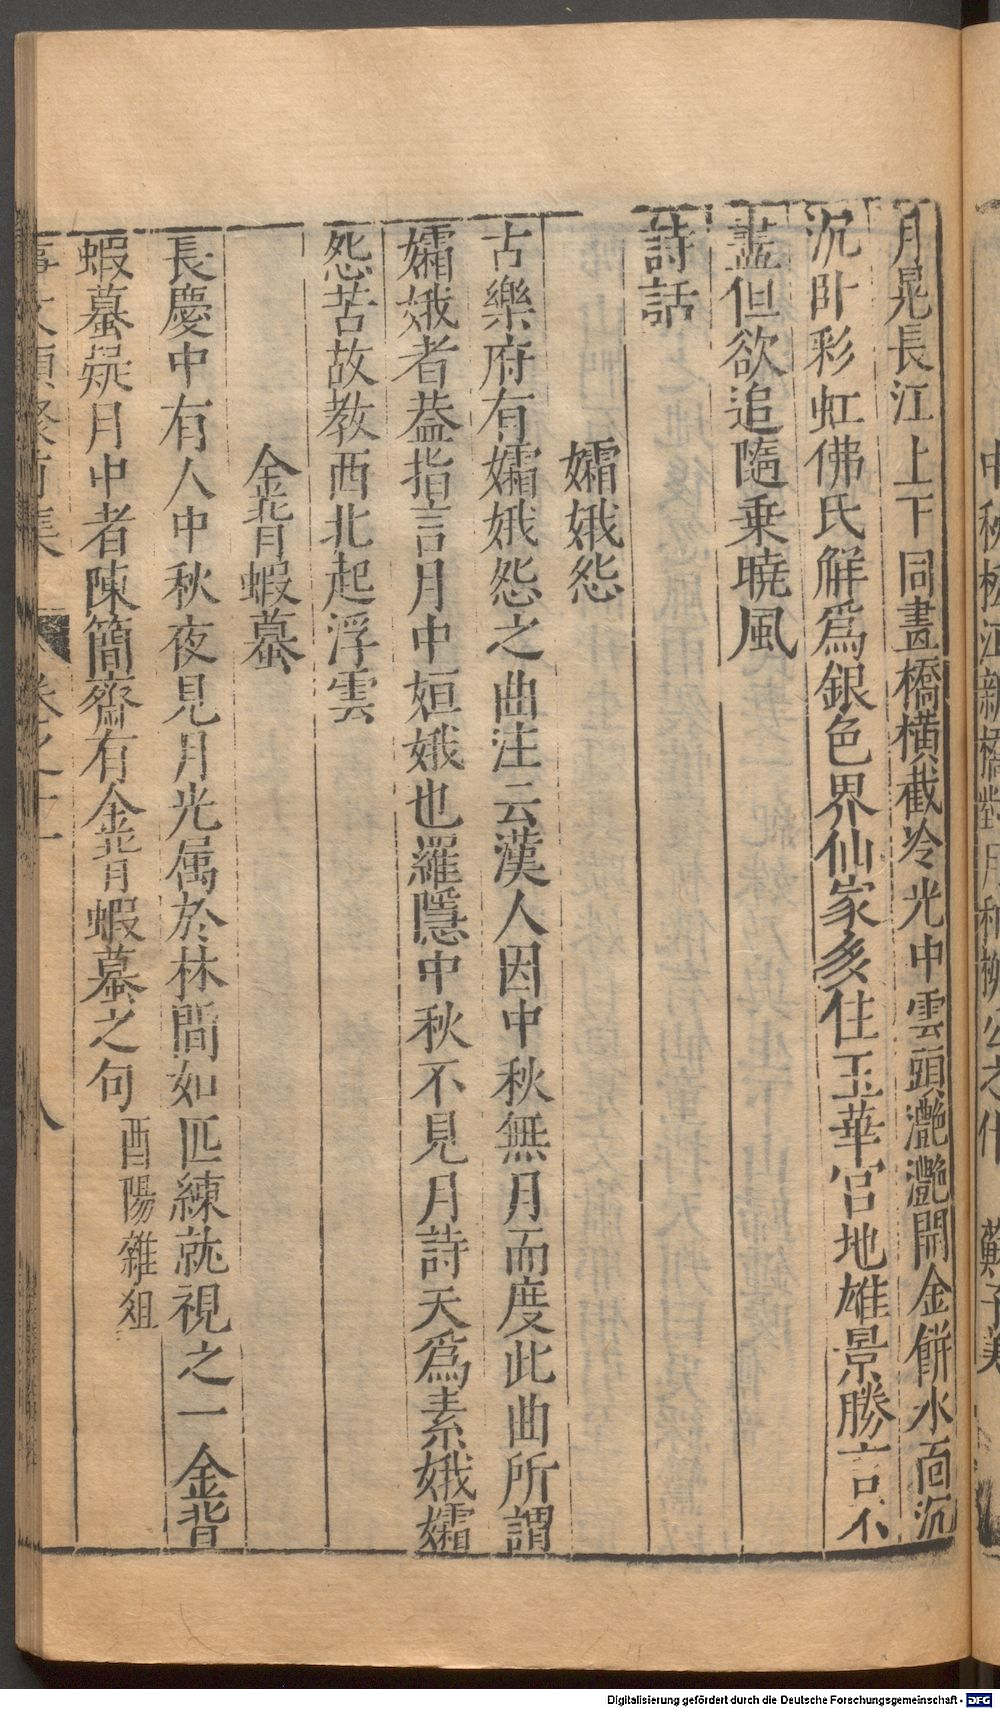 月晃長江上下同畫橋橫截冷光中雲頭灧灧開金餅水面沉
沉卧彩虹佛氏解爲銀色界仙家多住玉華宮地雄景勝言不
盡但欲追隨乗曉風
詩話
孀娥怨
古樂府有孀娥怨之曲注云漢人因中秋無月而度此曲所謂
孀娥者葢指言月中姮娥也羅隱中秋不見月詩天爲素娥孀
怨苦故教西北起浮雲
金背蝦蟇
長慶中有人中秋夜見月光属於林間如匹練就視之一金背
蝦蟇疑月中者陳簡齋有金背蝦蟇之句 酉陽雜俎
事文類聚前集 卷之十一 八
Digitalisierung gefördert durch die Deutsche Forschungsgemeinschaft - DFG